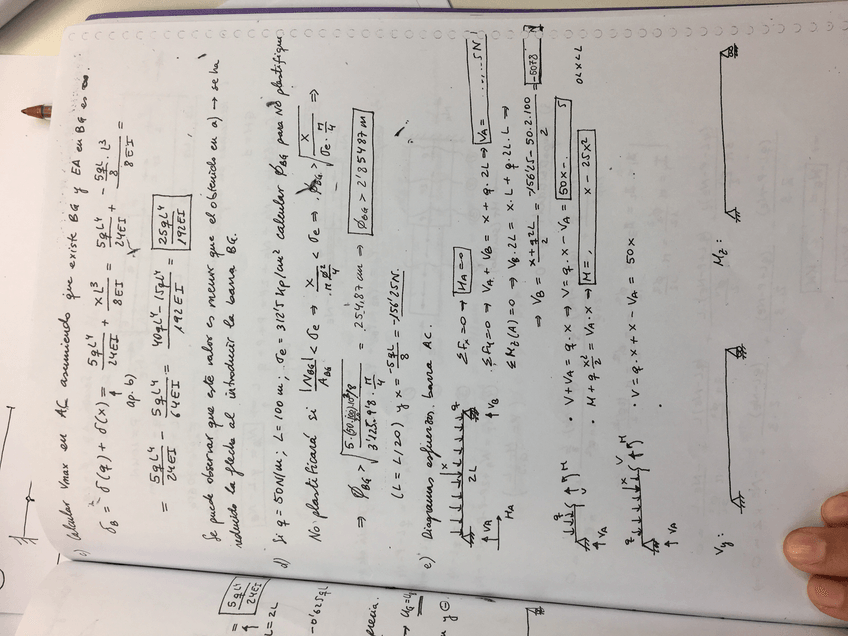 c) Calcular Vmax en AC asumiendo que existe BG y EA en BG es ∞.
δB = δ(q) + δ(x) = 5qL⁴/24EI + xL³/8EI = 5qL⁴/24EI + (-5qL/8 · L³)/8EI =
ap. b)
= 5qL⁴/24EI - 5qL⁴/64EI = (40qL⁴ - 15qL⁴)/192EI = 25qL⁴/192EI
Se puede observar que este valor es menor que el obtenido en a) → se ha
reducido la flecha al introducir la barra BG.
d) Si q = 50N/m; L = 100 m; σe = 312'5 Kp/cm² calcular ϕBG para No plastifique
No plastificará si |NBG|/ABG < σe ⇒ x/(π ϕ²/4) < σe ⇒ ϕBG > √(x/(σe · π/4)) ⇒
⇒ ϕBG > = 254,87 cm ⇒ ϕBG > 2'85487 m
(L = L/20) y x = -5qL/8 = -156'25N.
e) Diagramas esfuerzos. barra AC.
ΣFx = 0 → HA = 0
ΣFy = 0 → VA + VB = x + q·2L → VA = 5N
ΣMz(A) = 0 → VB·2L = x·L + q·2L·L →
⇒ VB = (x + q2L)/2 = (-156'25 - 50·2·100)/2 = -5078
q
x
2L
VA
HA
VB
· V + VA = q·x → V = q·x - VA = 50x - 5
· M + q x²/2 = VA·x → M = x - 25x²
0<x<L
q
M
VA
· V = q·x + x - VA = 50x
q
x
V
M
VA
Vy:
Mz:
5qL⁴/24EI
L = 2L
-0'625qL